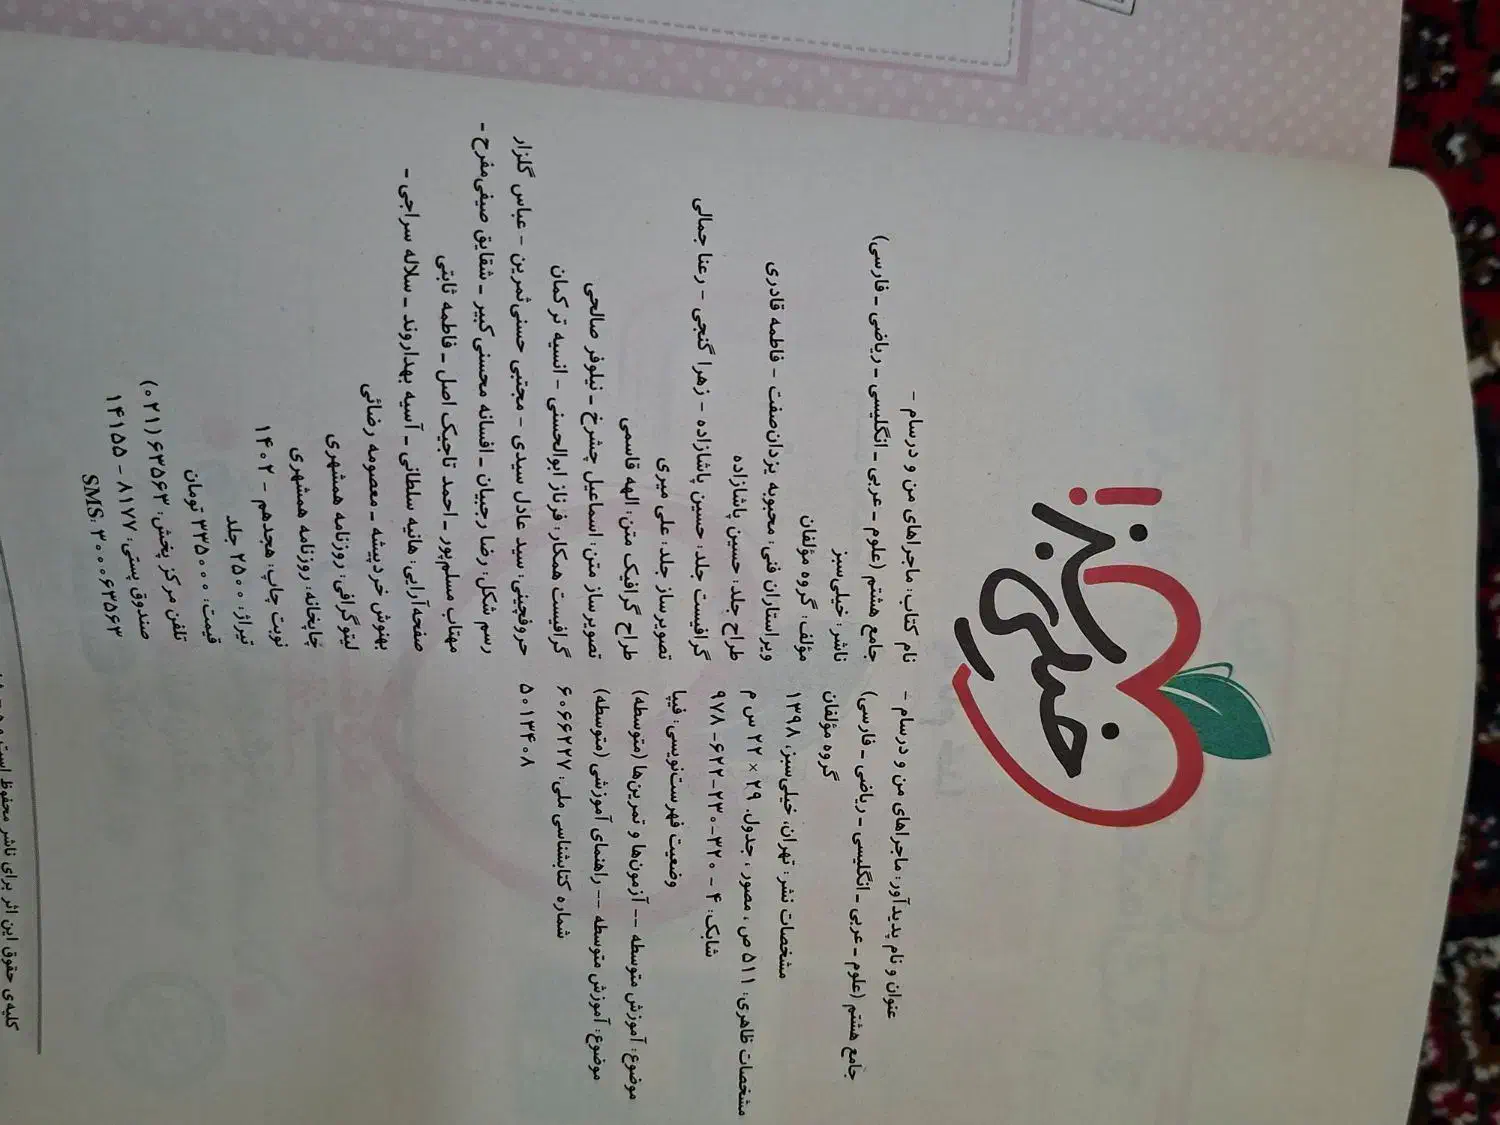 خیلی سبز!
عنوان و نام پدیدآور: ماجراهای من و درسام -
جامع هشتم (علوم ـ عربی ـ انگلیسی ـ ریاضی ـ فارسی)
گروه مؤلفان
مشخصات نشر: تهران، خیلی‌سبز، ۱۳۹۸
مشخصات ظاهری: ۵۱۱ ص، مصور، جدول. ۲۹ × ۲۲ س م
شابک: ۴ - ۳۲۰ - ۲۳۰ - ۶۲۲ - ۹۷۸
وضعیت فهرست‌نویسی: فیپا
موضوع: آموزش متوسطه -- آزمون‌ها و تمرین‌ها (متوسطه)
موضوع: آموزش متوسطه -- راهنمای آموزشی (متوسطه)
شماره کتابشناسی ملی: ۶۰۶۶۲۲۷
۵۰۱۳۴۰۸
نام کتاب: ماجراهای من و درسام -
جامع هشتم (علوم ـ عربی ـ انگلیسی ـ ریاضی ـ فارسی)
ناشر: خیلی‌سبز
مؤلف: گروه مؤلفان
ویراستاران فنی: محبوبه یزدان‌صفت - فاطمه قادری
طراح جلد: حسین پاشازاده
گرافیست جلد: حسین پاشازاده - زهرا گنجی - رعنا جمالی
تصویرساز جلد: علی میری
طراح گرافیک متن: الهه قاسمی
تصویرساز متن: اسماعیل چشرخ ـ نیلوفر صالحی
گرافیست همکار: فرناز ابوالحسنی - انسیه ترکمان
حروفچینی: سید عادل سیدی - مجتبی حسنی‌ثمرین - عباس گلزار
رسم شکل: رضا رجبیان ـ افسانه محسنی‌کبیر ـ شقایق صیفی‌مفرح -
مهتاب مسلم‌پور ـ احمد تاجیک اصل ـ فاطمه ثابتی
صفحه‌آرایی: هانیه سلطانی ـ آسیه بهداروند ـ سلاله سراجی -
بهنوش خردپیشه ـ معصومه رضائی
لیتوگرافی: روزنامه همشهری
چاپخانه: روزنامه همشهری
نوبت چاپ: هجدهم - ۱۴۰۲
تیراژ: ۲۵۰۰ جلد
قیمت: ۳۳۵۰۰۰ تومان
تلفن مرکز پخش: ۶۳۵۶۳ (۰۲۱)
صندوق پستی: ۸۱۷۷ - ۱۴۱۵۵
SMS: ۳۰۰۰۶۳۵۶۳
کلیه‌ی حقوق این اثر برای ناشر محفوظ است